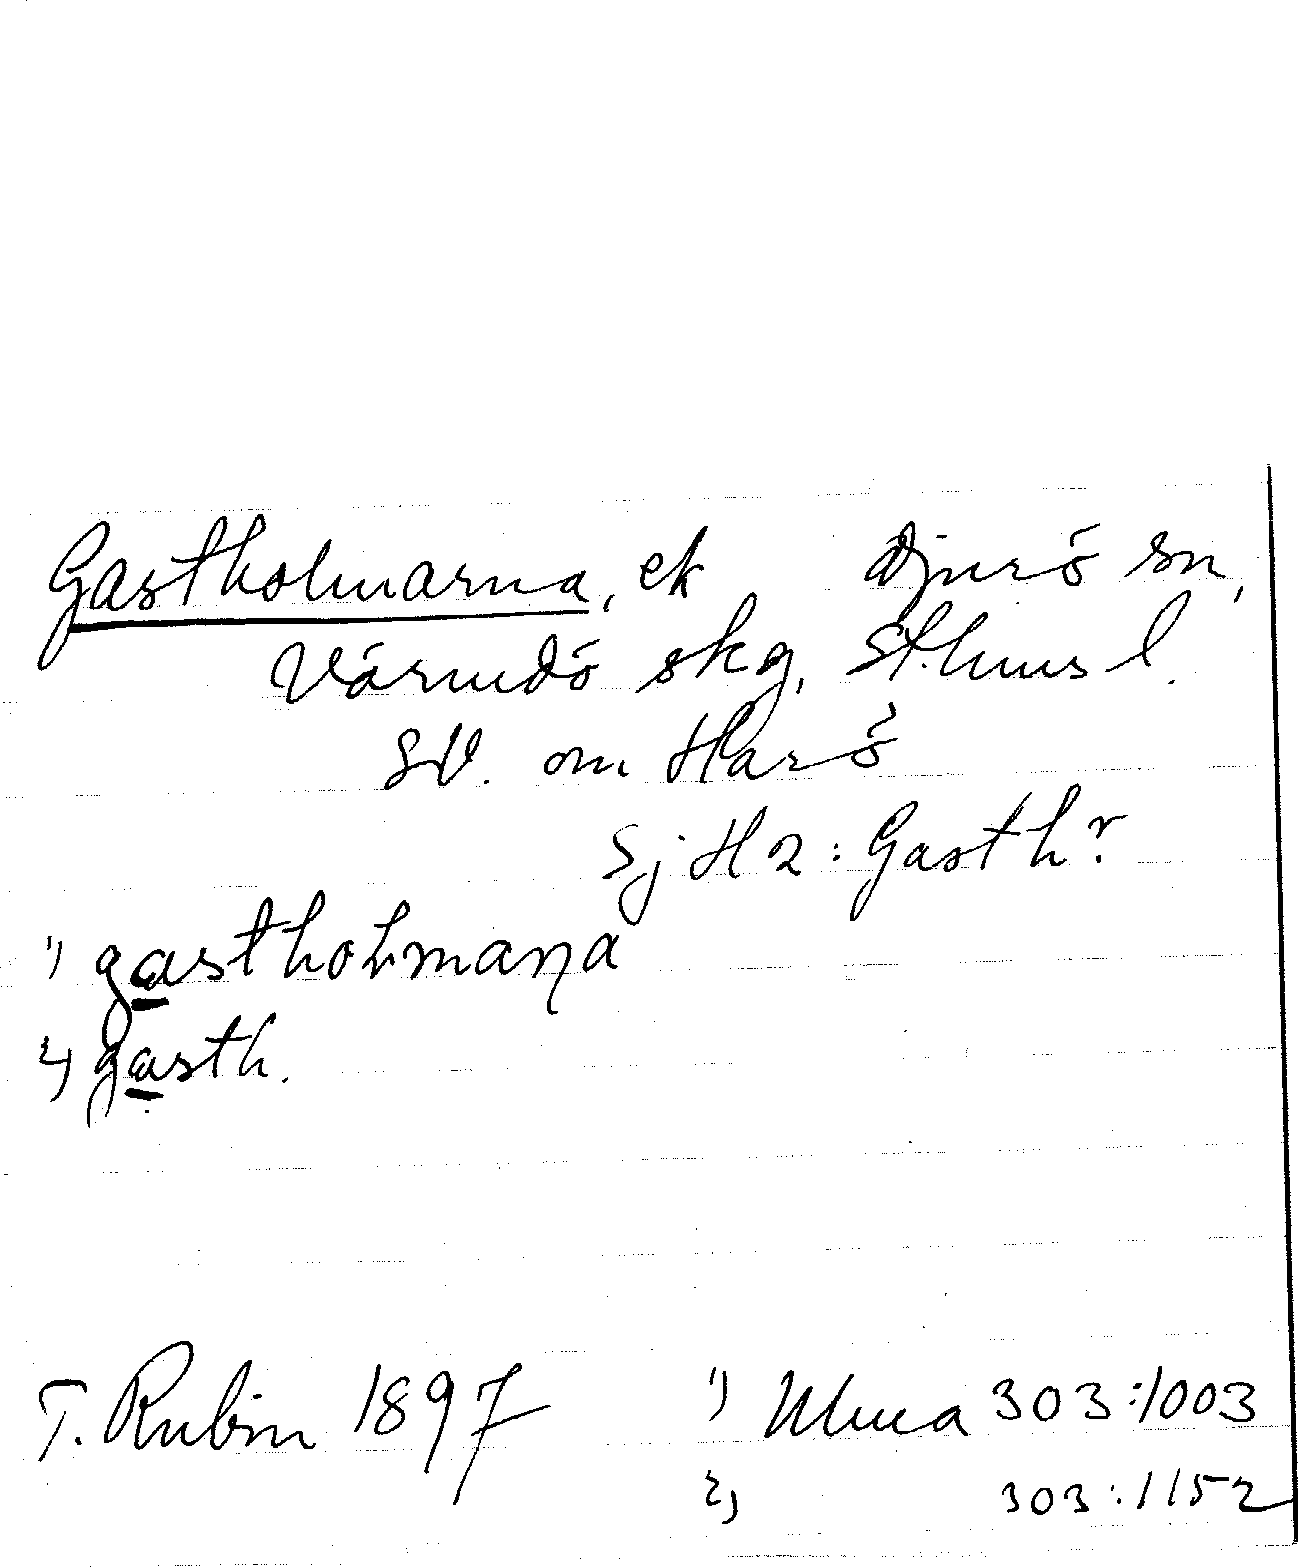 Gastholmarna, ek Djurö sn,
Värmdö skg, Sthlms l.
SV. om Harö
Sj H 2: Gasth?
1) gastholmaṉa
2) gasth.
T. Rubin 1897 1) Ulma 303:1003
2) 303:1152